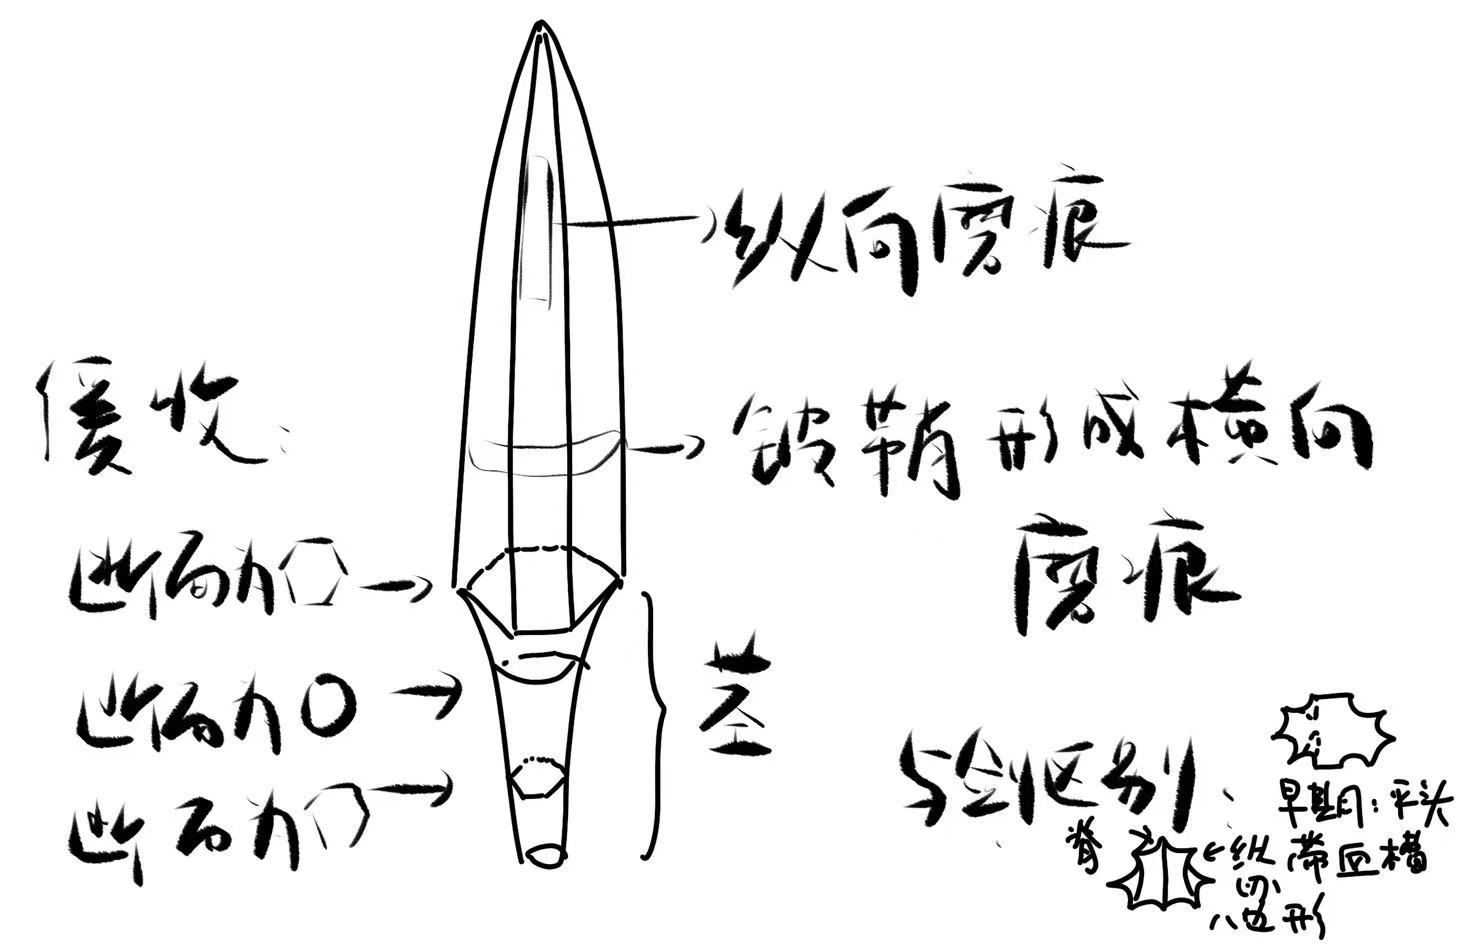 纵向磨痕
缓收：
铍鞘形成横向
磨痕
断面为
断面为
断面为
茎
与剑区别：
早期：平头
带血槽
脊
纵切
八边形